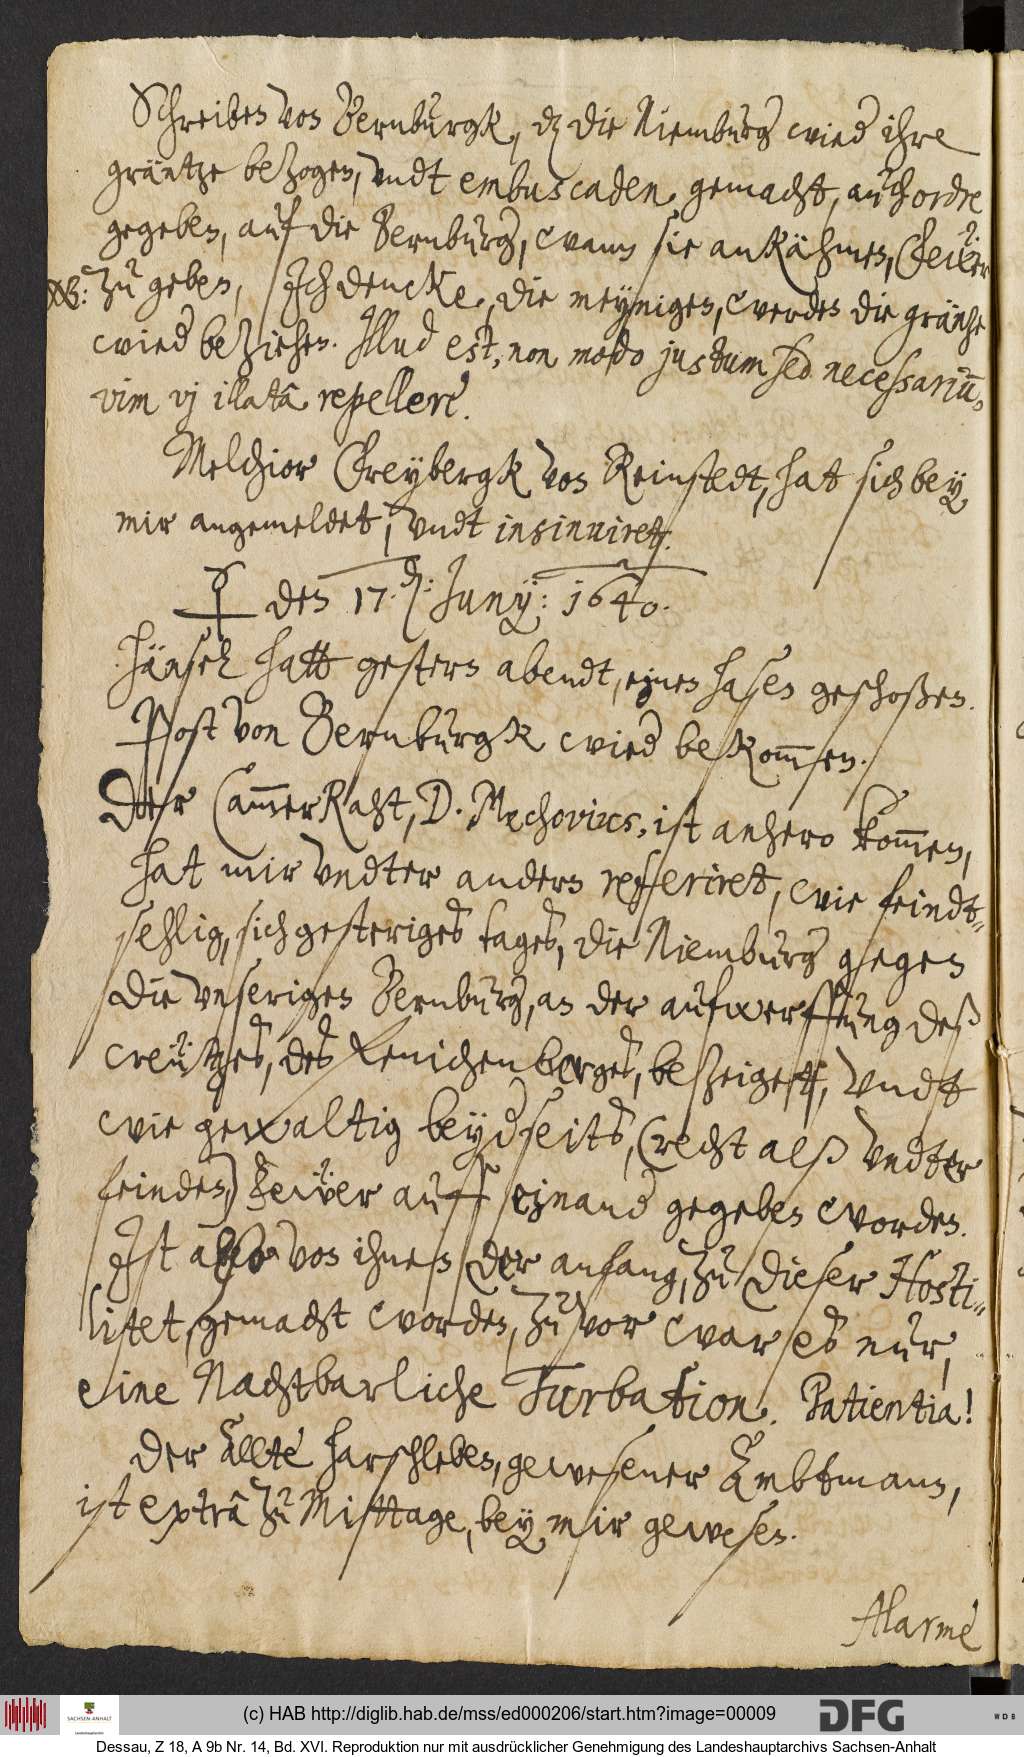 Schreiben von Bernburgk, dz die Niemburg wied ihre
gräntze bezogen, vndt embuscaden gemacht, auch ordre
gegeben, auf die Bernburg, wann sie ankähmen, Feẅer
NB: zu geben, Jch dencke, die meynigen, werden die gräntze
wied beziehen. Jllud est, non modo justum sed necessariū,
vim vj illatâ repellere.
Melchior Freybergk von Reinstedt, hat sich bey
mir angemeldet, vndt insinuiret.
☿ den 17. Juny: 1640.
Hänsel hatt gestern abendt, einen hasen geschoßen.
Post von Bernburgk wied bekom̄en.
Der Cam̄erRaht, D. Mechovius, ist anhero kom̄en,
hat mir vndter andern referiret, wie feindt-
sehlig, sich gesteriges tages, die Niemburg gegen
die vnserigen Bernburg, an der aufwerffung deß
creützes, des kenichenberges, bezeigett, vndt
wie gewaltig beydseits, (recht alß vndter
feinden,) Feẅer auff einand gegeben worden.
Jst also von ihnen der anfang, zu dieser Hosti-
litet, gemacht worden, zuvor war es nur,
eine Nachtbarliche Turbation. Patientia!
Der Allte Harschleben, gewesener Ambtmann,
ist extrâ zu Mittage, bey mir gewesen.
Alarme
(c) HAB http://diglib.hab.de/mss/ed000206/start.htm?image=00009
SACHSEN-ANHALT
DFG
WDB
Dessau, Z 18, A 9b Nr. 14, Bd. XVI. Reproduktion nur mit ausdrücklicher Genehmigung des Landeshauptarchivs Sachsen-Anhalt